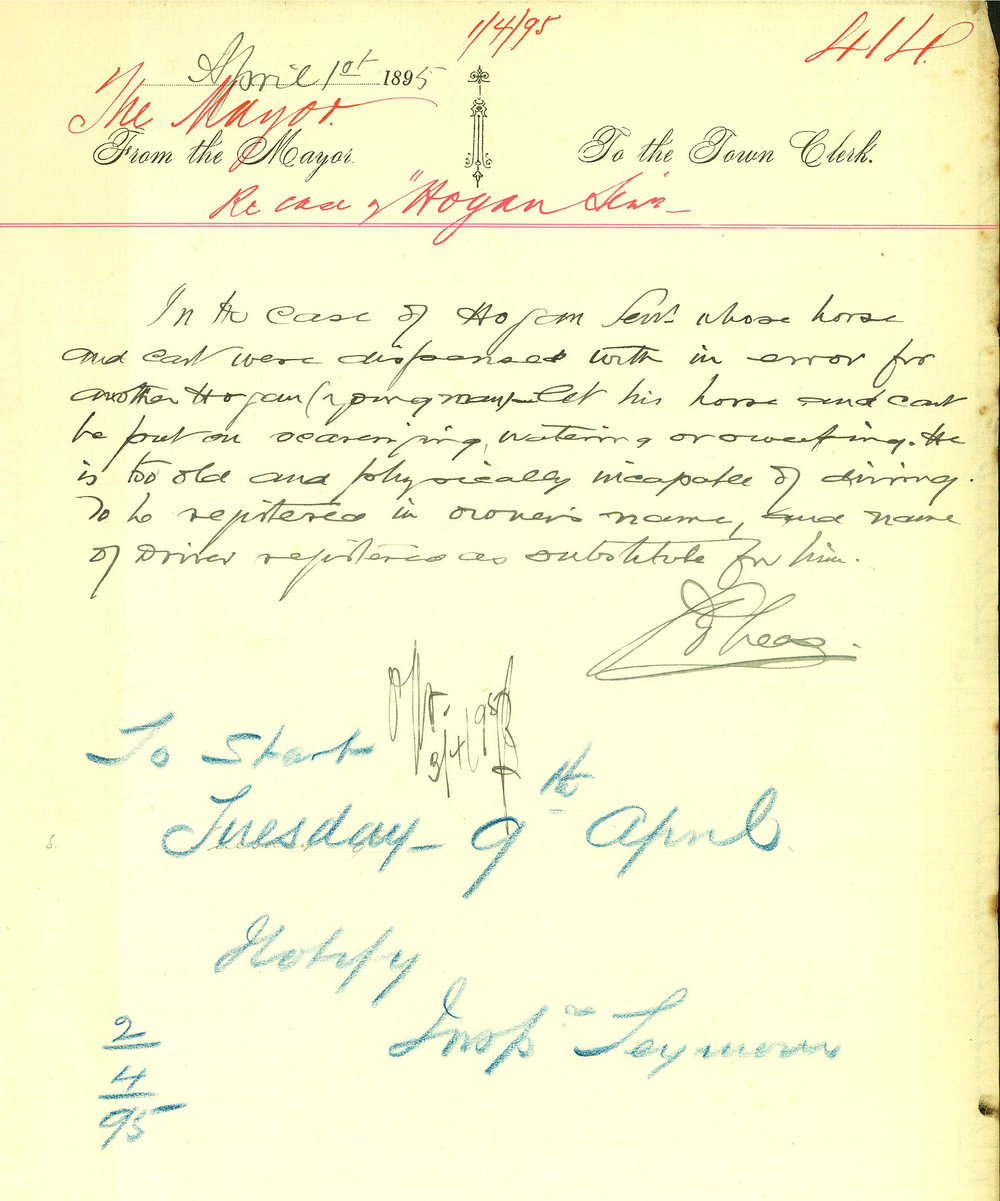 1/4/95
414.
April 1st 1895
The Mayor.
From the Mayor.
To the Town Clerk.
Re case of "Hogan Senr"
In the case of Hogan Senr. whose horse
and cart were dispensed with in error for
another Hogan (young man) - let his horse and cart
be put on scavenging, watering or sweeping. He
is too old and physically incapable of driving.
To be registered in owner's name, and name
of Driver registered as substitute for him.
3/4/95
To Start
Tuesday - 9th April.
Notify
Inspr Seymour
2
4
95